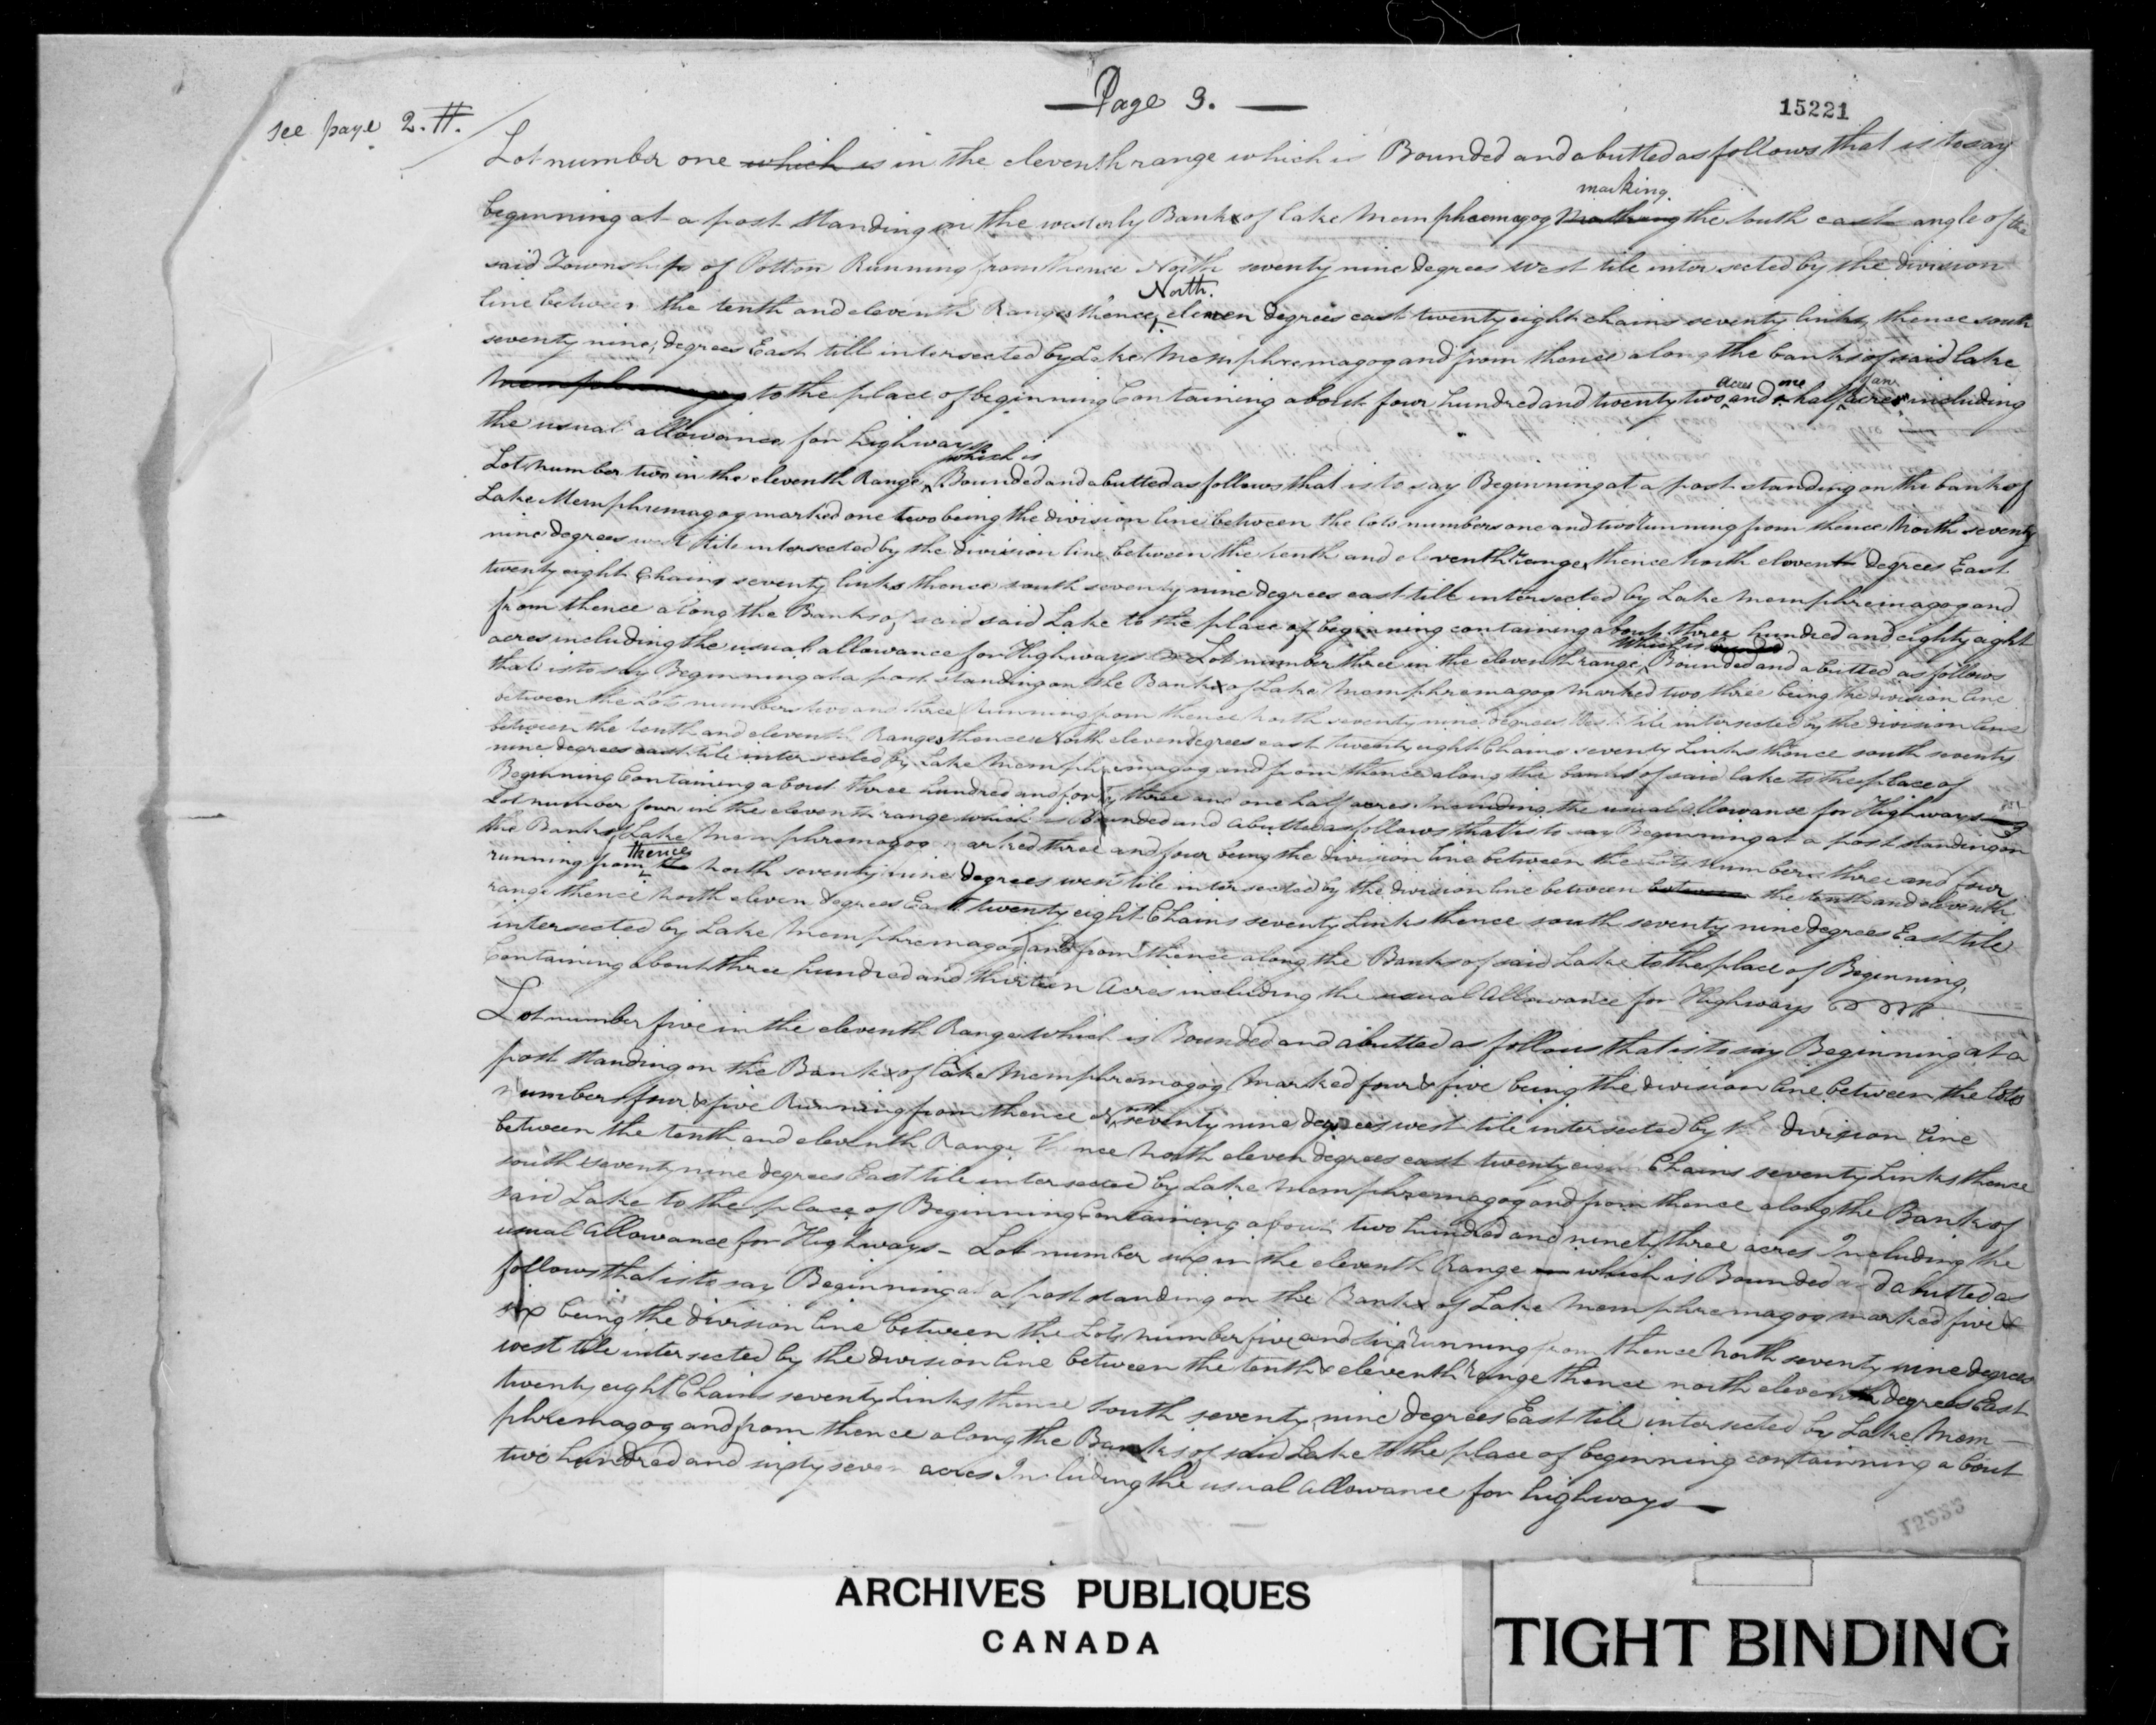 Page 3.
15221
see page 2. #.
Lot number one which is in the eleventh range which is Bounded and abutted as follows that is to say
marking
beginning at a post standing on the westerly Bank of lake Memphremagog the south east angle of the
said Township of Potton Running from thence North seventy nine degrees west till intersected by the division
North.
line between the tenth and eleventh Range thence eleven degrees east twenty eight chains seventy links thence south
seventy nine degrees East till intersected by Lake Memphremagog and from thence along the banks of said lake
acres one an
Memphremagog to the place of beginning Containing about four hundred and twenty two and a half acres including
the usual allowance for highways
which is
Lot number two in the eleventh Range Bounded and abutted as follows that is to say Beginning at a post standing on the bank of
Lake Memphremagog marked one two being the division line between the lots numbers one and two running from thence North seventy
nine degrees west till intersected by the division line between the tenth and eleventh range thence North eleventh degrees East
twenty eight Chains seventy links thence south seventy nine degrees east till intersected by Lake Memphremagog and
from thence along the Banks of said said Lake to the place of beginning containing about three hundred and eighty eight
which is
acres including the usual allowance for Highways Lot number three in the eleventh range Bounded and abutted as follows
that is to say Beginning at a post standing on the Bank of Lake Memphremagog marked two three being the division line
between the Lots numbers two and three Running from thence North seventy nine degrees West till intersected by the division line
between the tenth and eleventh Range thence North eleven degrees east twenty eight Chains seventy Links thence south seventy
nine degrees east till intersected by Lake Memphremagog and from thence along the banks of said lake to the place of
Beginning Containing about three hundred and forty three and one half acres Including the usual allowance for Highways
Lot number four in the eleventh range which is Bounded and abutted as follows that is to say Beginning at a post standing on
the Bank of Lake Memphremagog marked three and four being the division line between the Lots Numbers three and four
thence
running from the North seventy nine Degrees west till intersected by the division line between between the tenth and eleventh
range thence North eleven degrees East twenty eight Chains seventy Links thence south seventy nine degrees East till
intersected by Lake Memphremagog and from thence along the Banks of said Lake to the place of Beginning,
Containing about three hundred and thirteen Acres including the usual Allowance for Highways
Lot number five in the eleventh Range which is Bounded and abutted as follows that is to say Beginning at a
post standing on the Bank of Lake Memphremagog Marked four & five being the division line between the lots
numbers four & five Running from thence North seventy nine degrees west till intersected by division line
between the tenth and eleventh Range Thence North eleven degrees east twenty eight Chains seventy Links thence
south seventy nine degrees East till intersected by Lake Memphremagog and from thence along the Bank of
said Lake to the place of Beginning Containing about two hundred and ninety three acres Including the
usual Allowance for Highways - Lot number six in the eleventh Range which is Bounded and abutted as
follows that is to say Beginning at a post standing on the Bank of Lake Memphremagog marked five &
six being the division line between the Lots number five and six Running from thence North seventy nine degrees
west till intersected by the division line between the tenth & eleventh Range thence north eleventh degrees East
twenty eight Chains seventy Links thence South seventy nine degrees East till intersected by Lake Mem-
phremagog and from thence along the Banks of said Lake to the place of beginning containing about
two hundred and sixty seven acres Including the usual allowance for highways
15222
ARCHIVES PUBLIQUES
CANADA
TIGHT BINDING